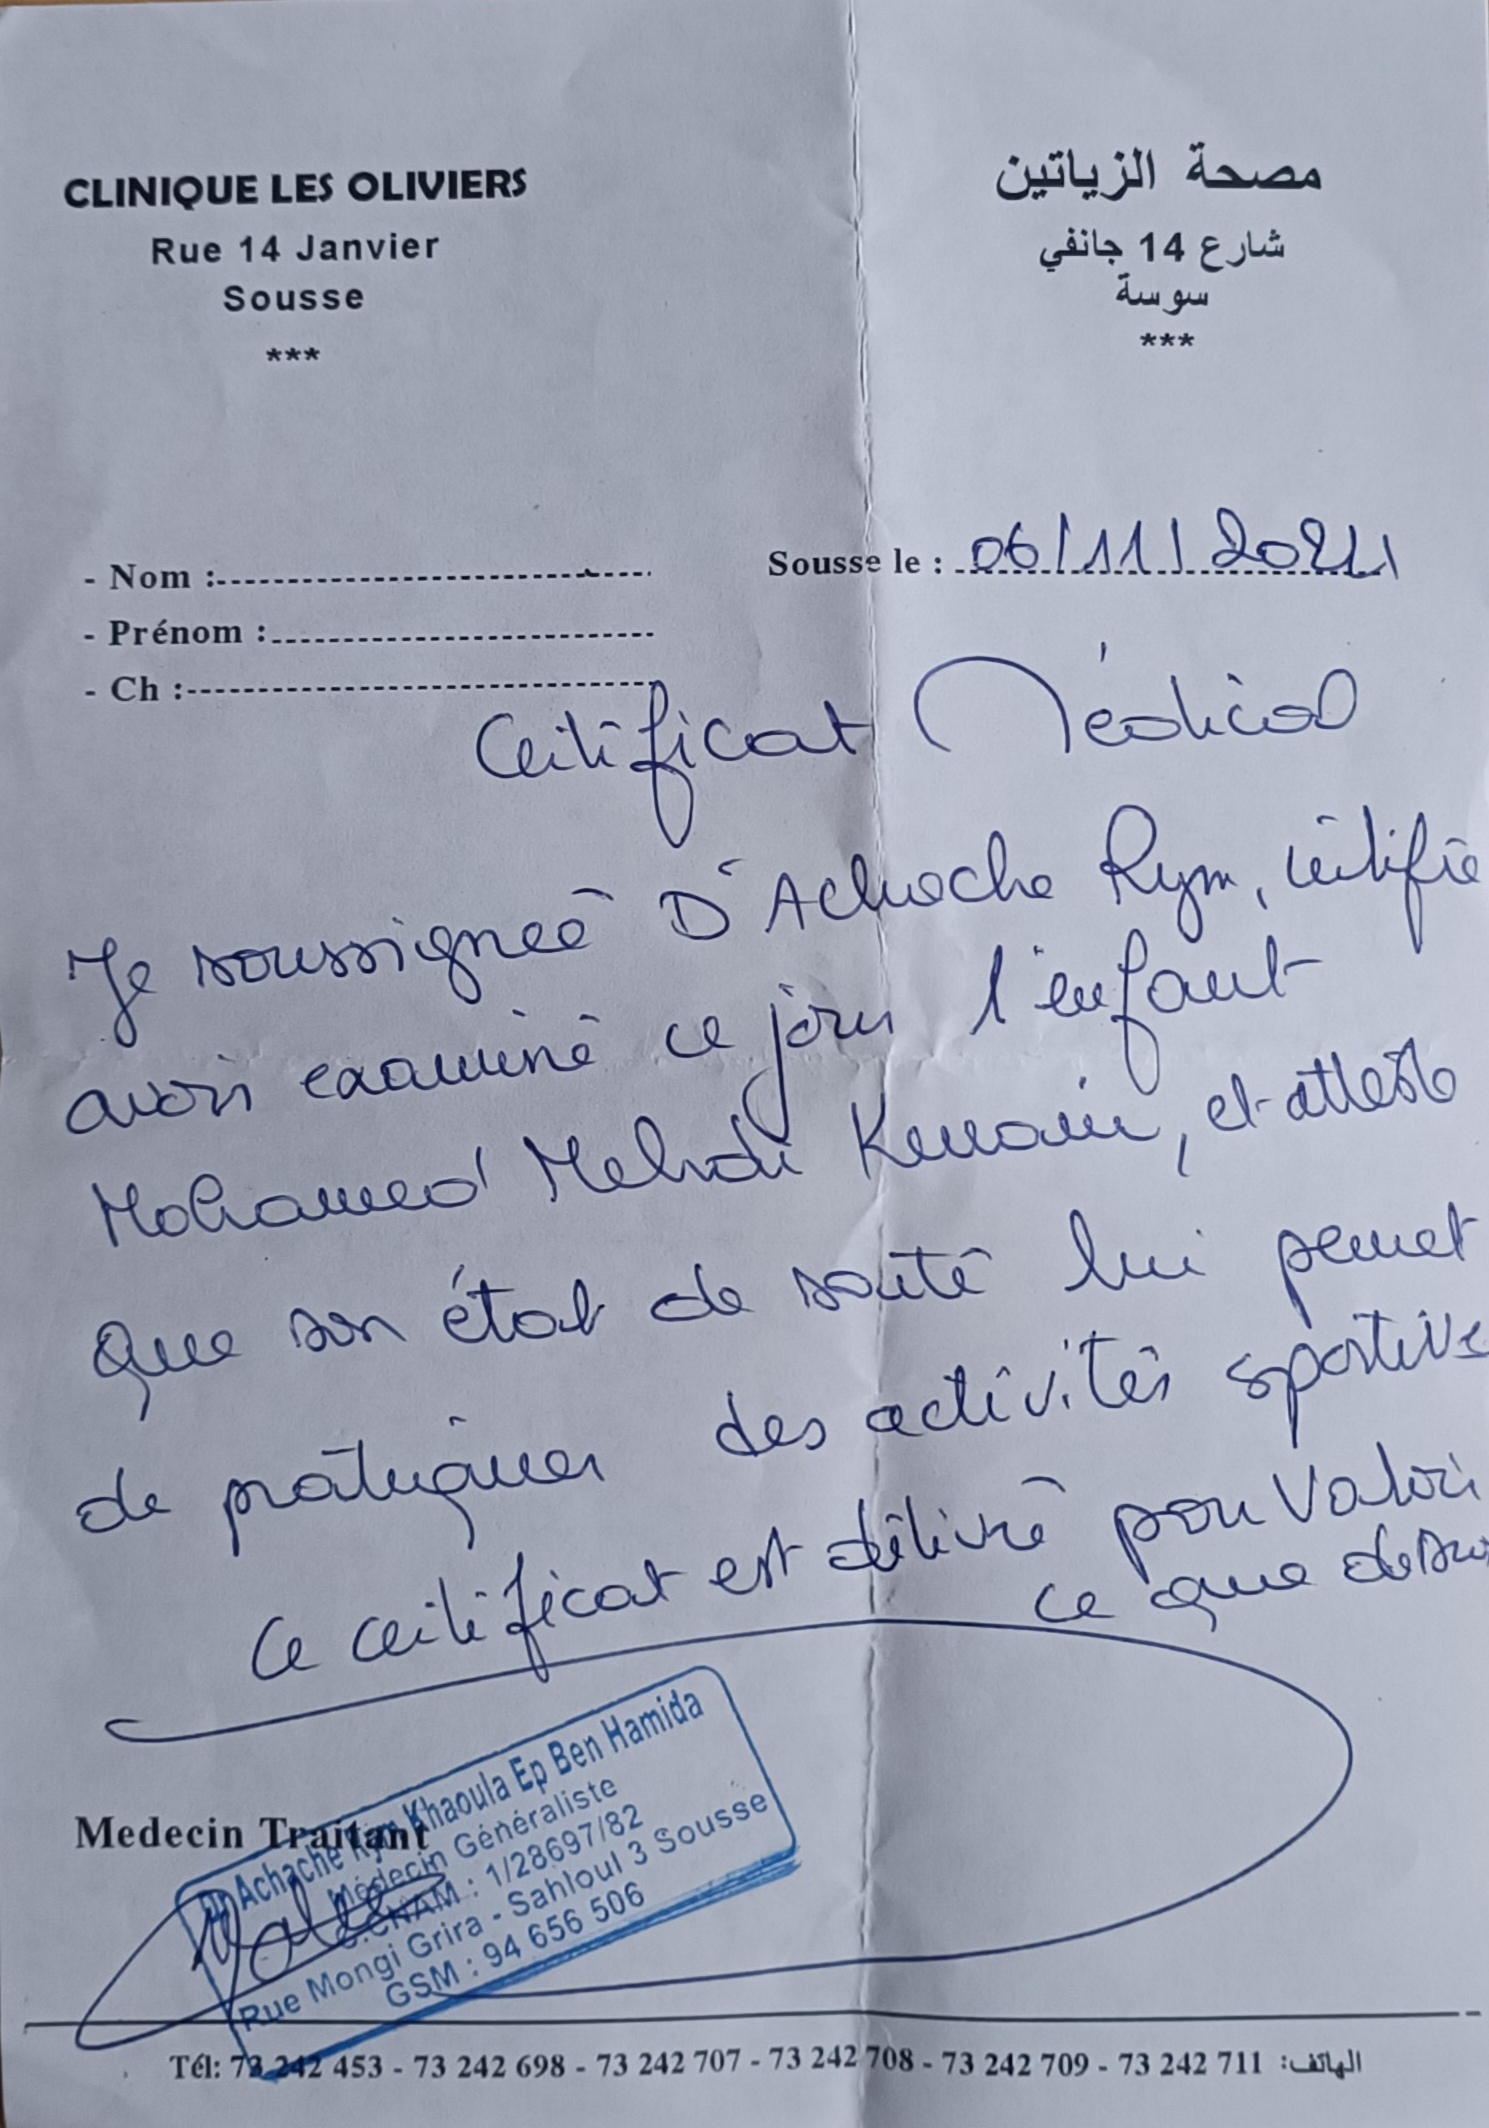 CLINIQUE LES OLIVIERS
Rue 14 Janvier
Sousse
***
مصحة الزياتين
شارع 14 جانفي
سوسة
***
- Nom :
- Prénom :
- Ch :
Sousse le : 06/11/2024
Certificat Médical
Je soussigneé Dr Achache Rym, certifie
avoir examiné ce jour l'enfant
Mohamed Mehdi, et atteste
que son état de santé lui permet
de pratiquer des activités sportive
Ce certificat est délivré pour valoir
ce que dessus
Medecin Traitant
Dr Achache Rym Khaoula Ep Ben Hamida
Médecin Généraliste
CNAM : 1/28697/82
Rue Mongi Grira - Sahloul 3 Sousse
GSM : 94 656 506
Tél: 73 242 453 - 73 242 698 - 73 242 707 - 73 242 708 - 73 242 709 - 73 242 711 الهاتف: